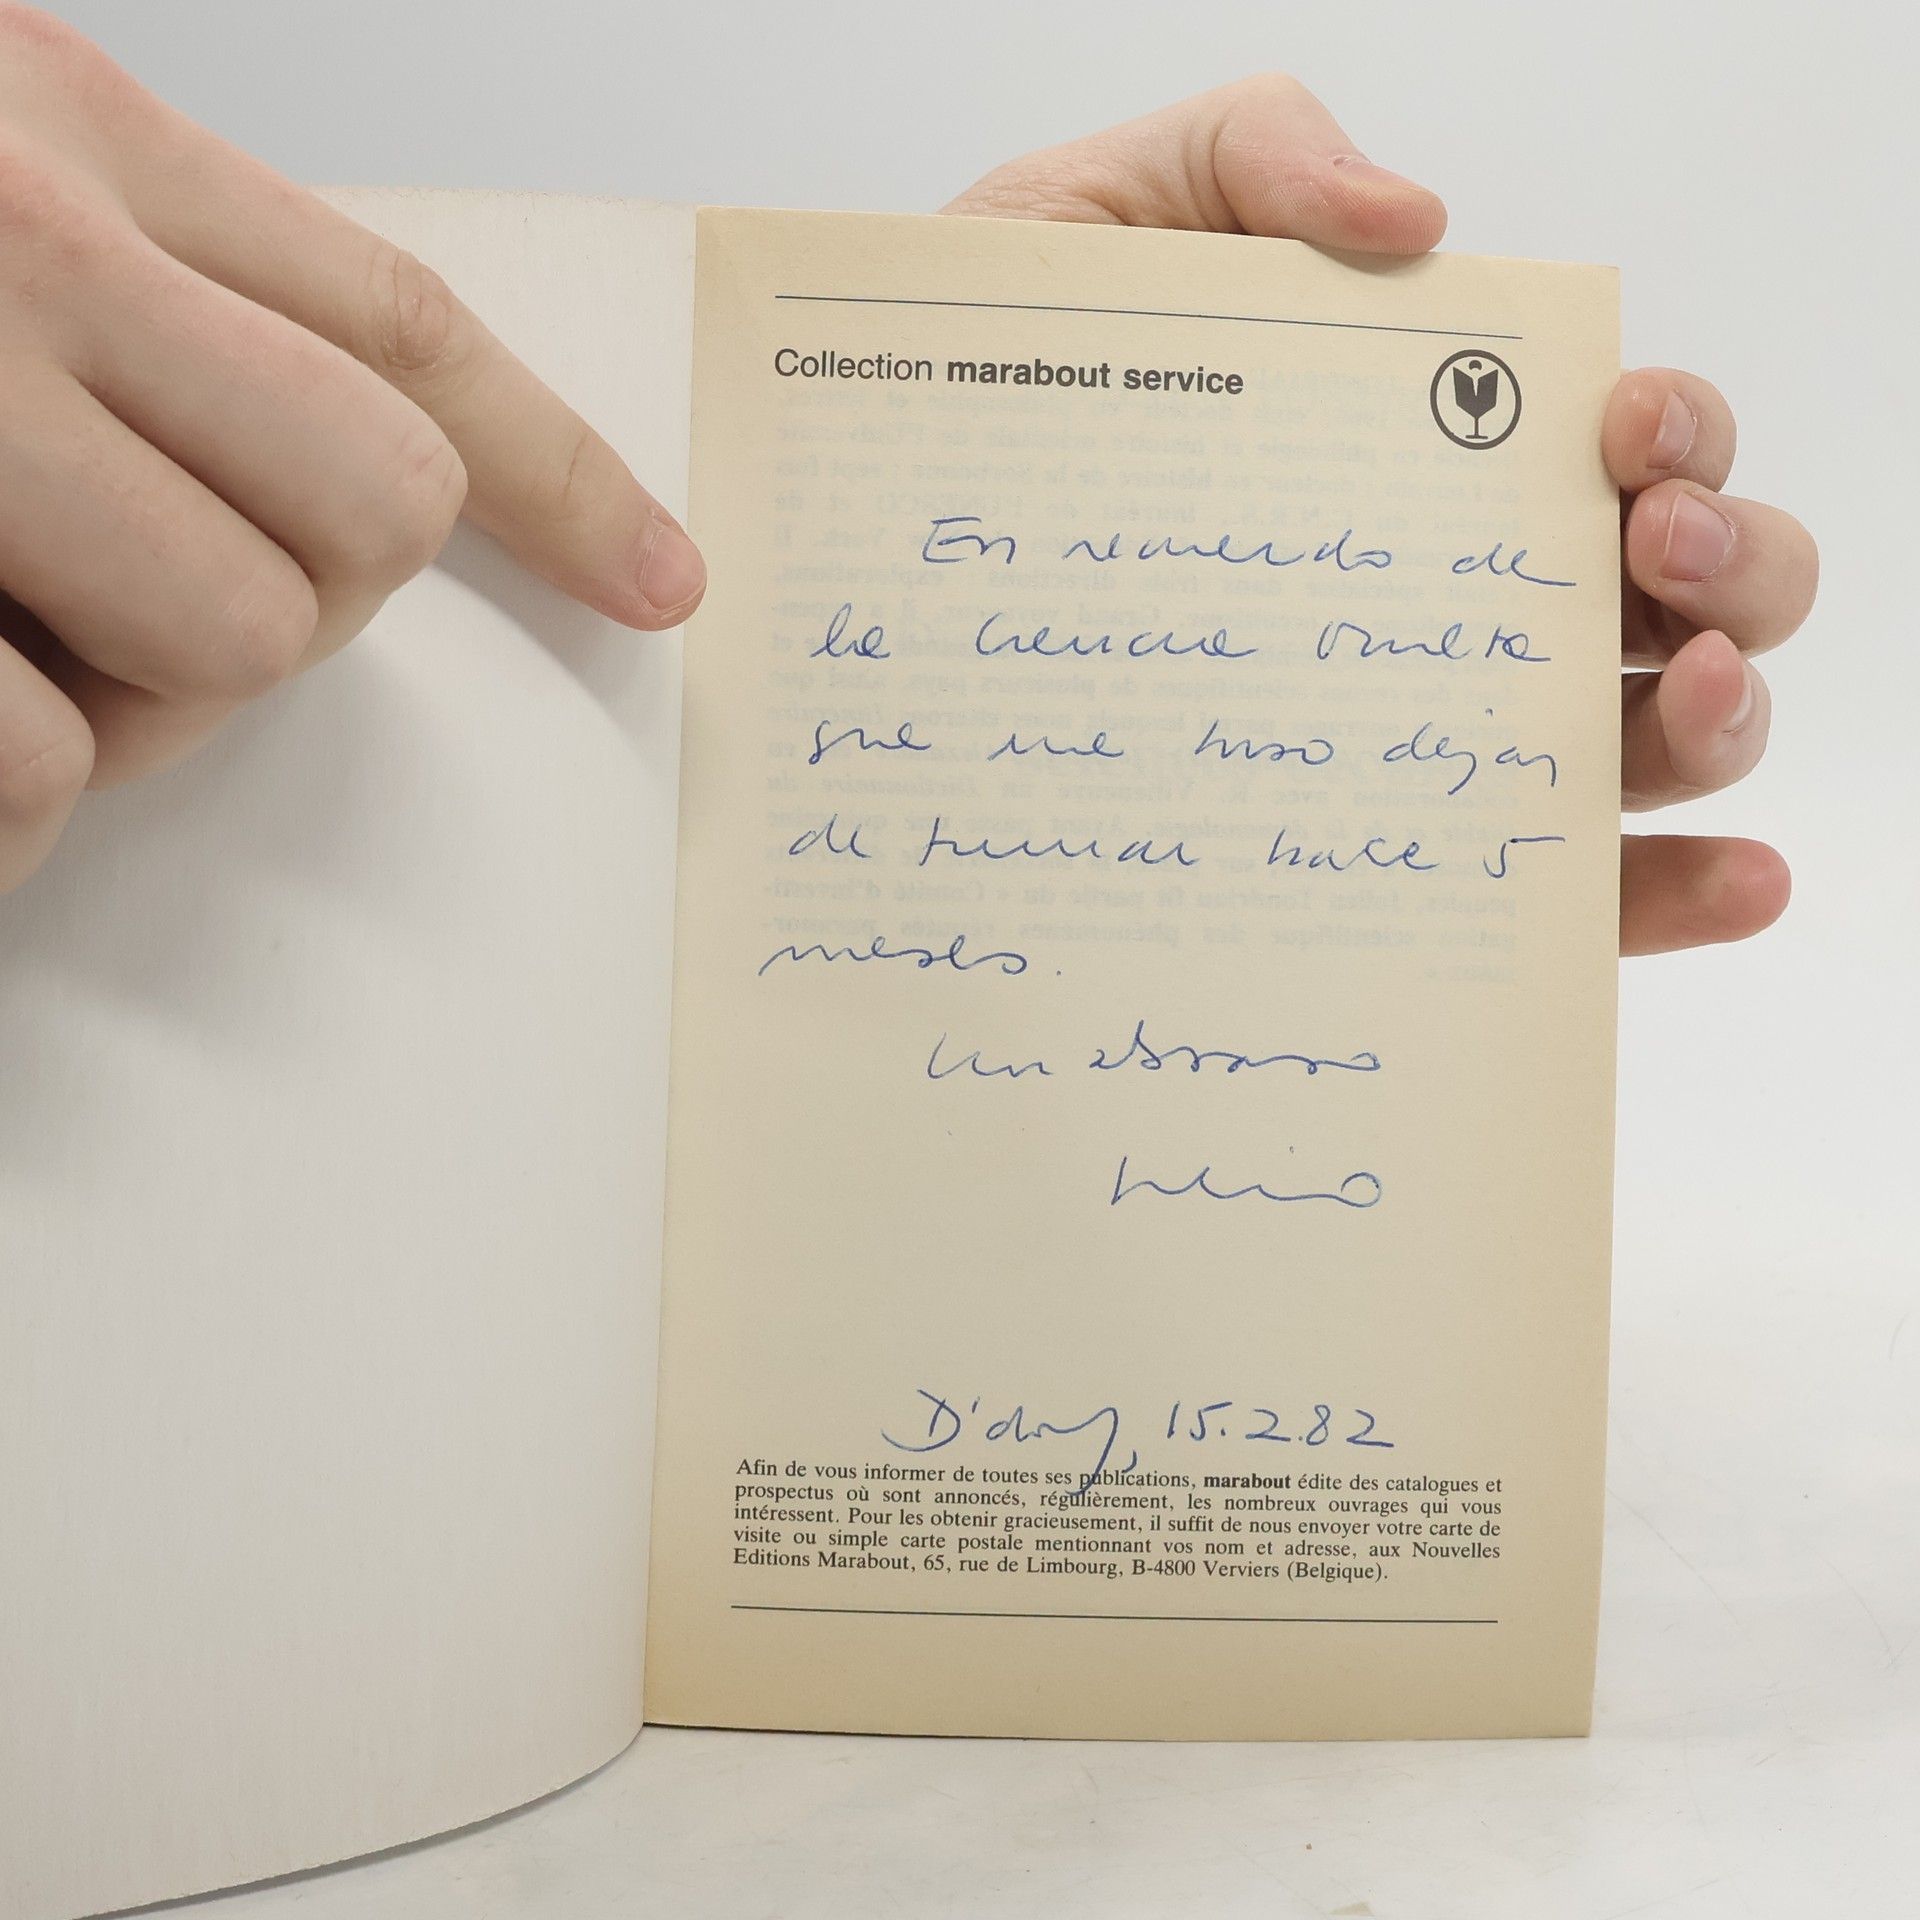 Collection marabout service
En recuerdo de
la ciencia oculta
que me hizo dejar
de fumar hace 5
meses.
Un abrazo
15.2.82
Afin de vous informer de toutes ses publications, marabout édite des catalogues et
prospectus où sont annoncés, régulièrement, les nombreux ouvrages qui vous
intéressent. Pour les obtenir gracieusement, il suffit de nous envoyer votre carte de
visite ou simple carte postale mentionnant vos nom et adresse, aux Nouvelles
Editions Marabout, 65, rue de Limbourg, B-4800 Verviers (Belgique).